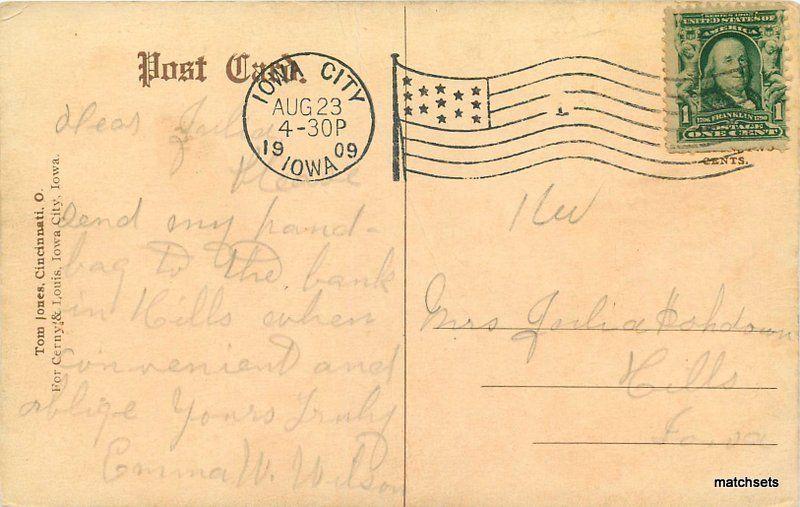 Post Card.
IOWA CITY
AUG 23
4-30P
1909
IOWA
SERIES 1902
UNITED STATES OF
AMERICA
1 1
1706 FRANKLIN 1790
POSTAGE
ONE CENT
CENTS.
Tom Jones, Cincinnati, O.
For Cerny & Louis, Iowa City, Iowa.
Dear Julia
Please
send my hand-
bag to the bank
in Hills when
convenient and
oblige Yours Truly
Emma W. Wilson
Mrs Julia
Hills
Iowa
matchsets